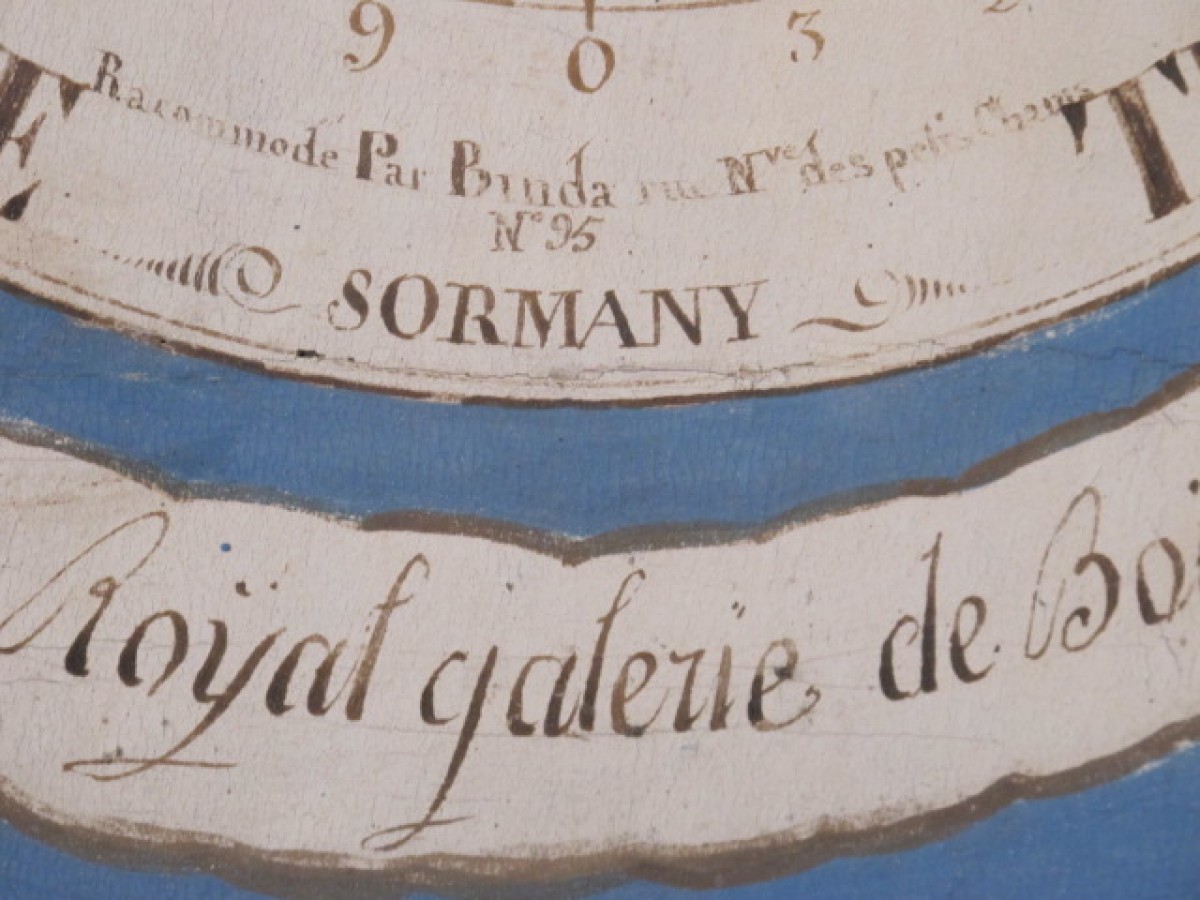 9 0 3 2
E T
Racommodé Par Binda rue Nve des petis Chams
N° 95
SORMANY
Roÿal galerie de Boi